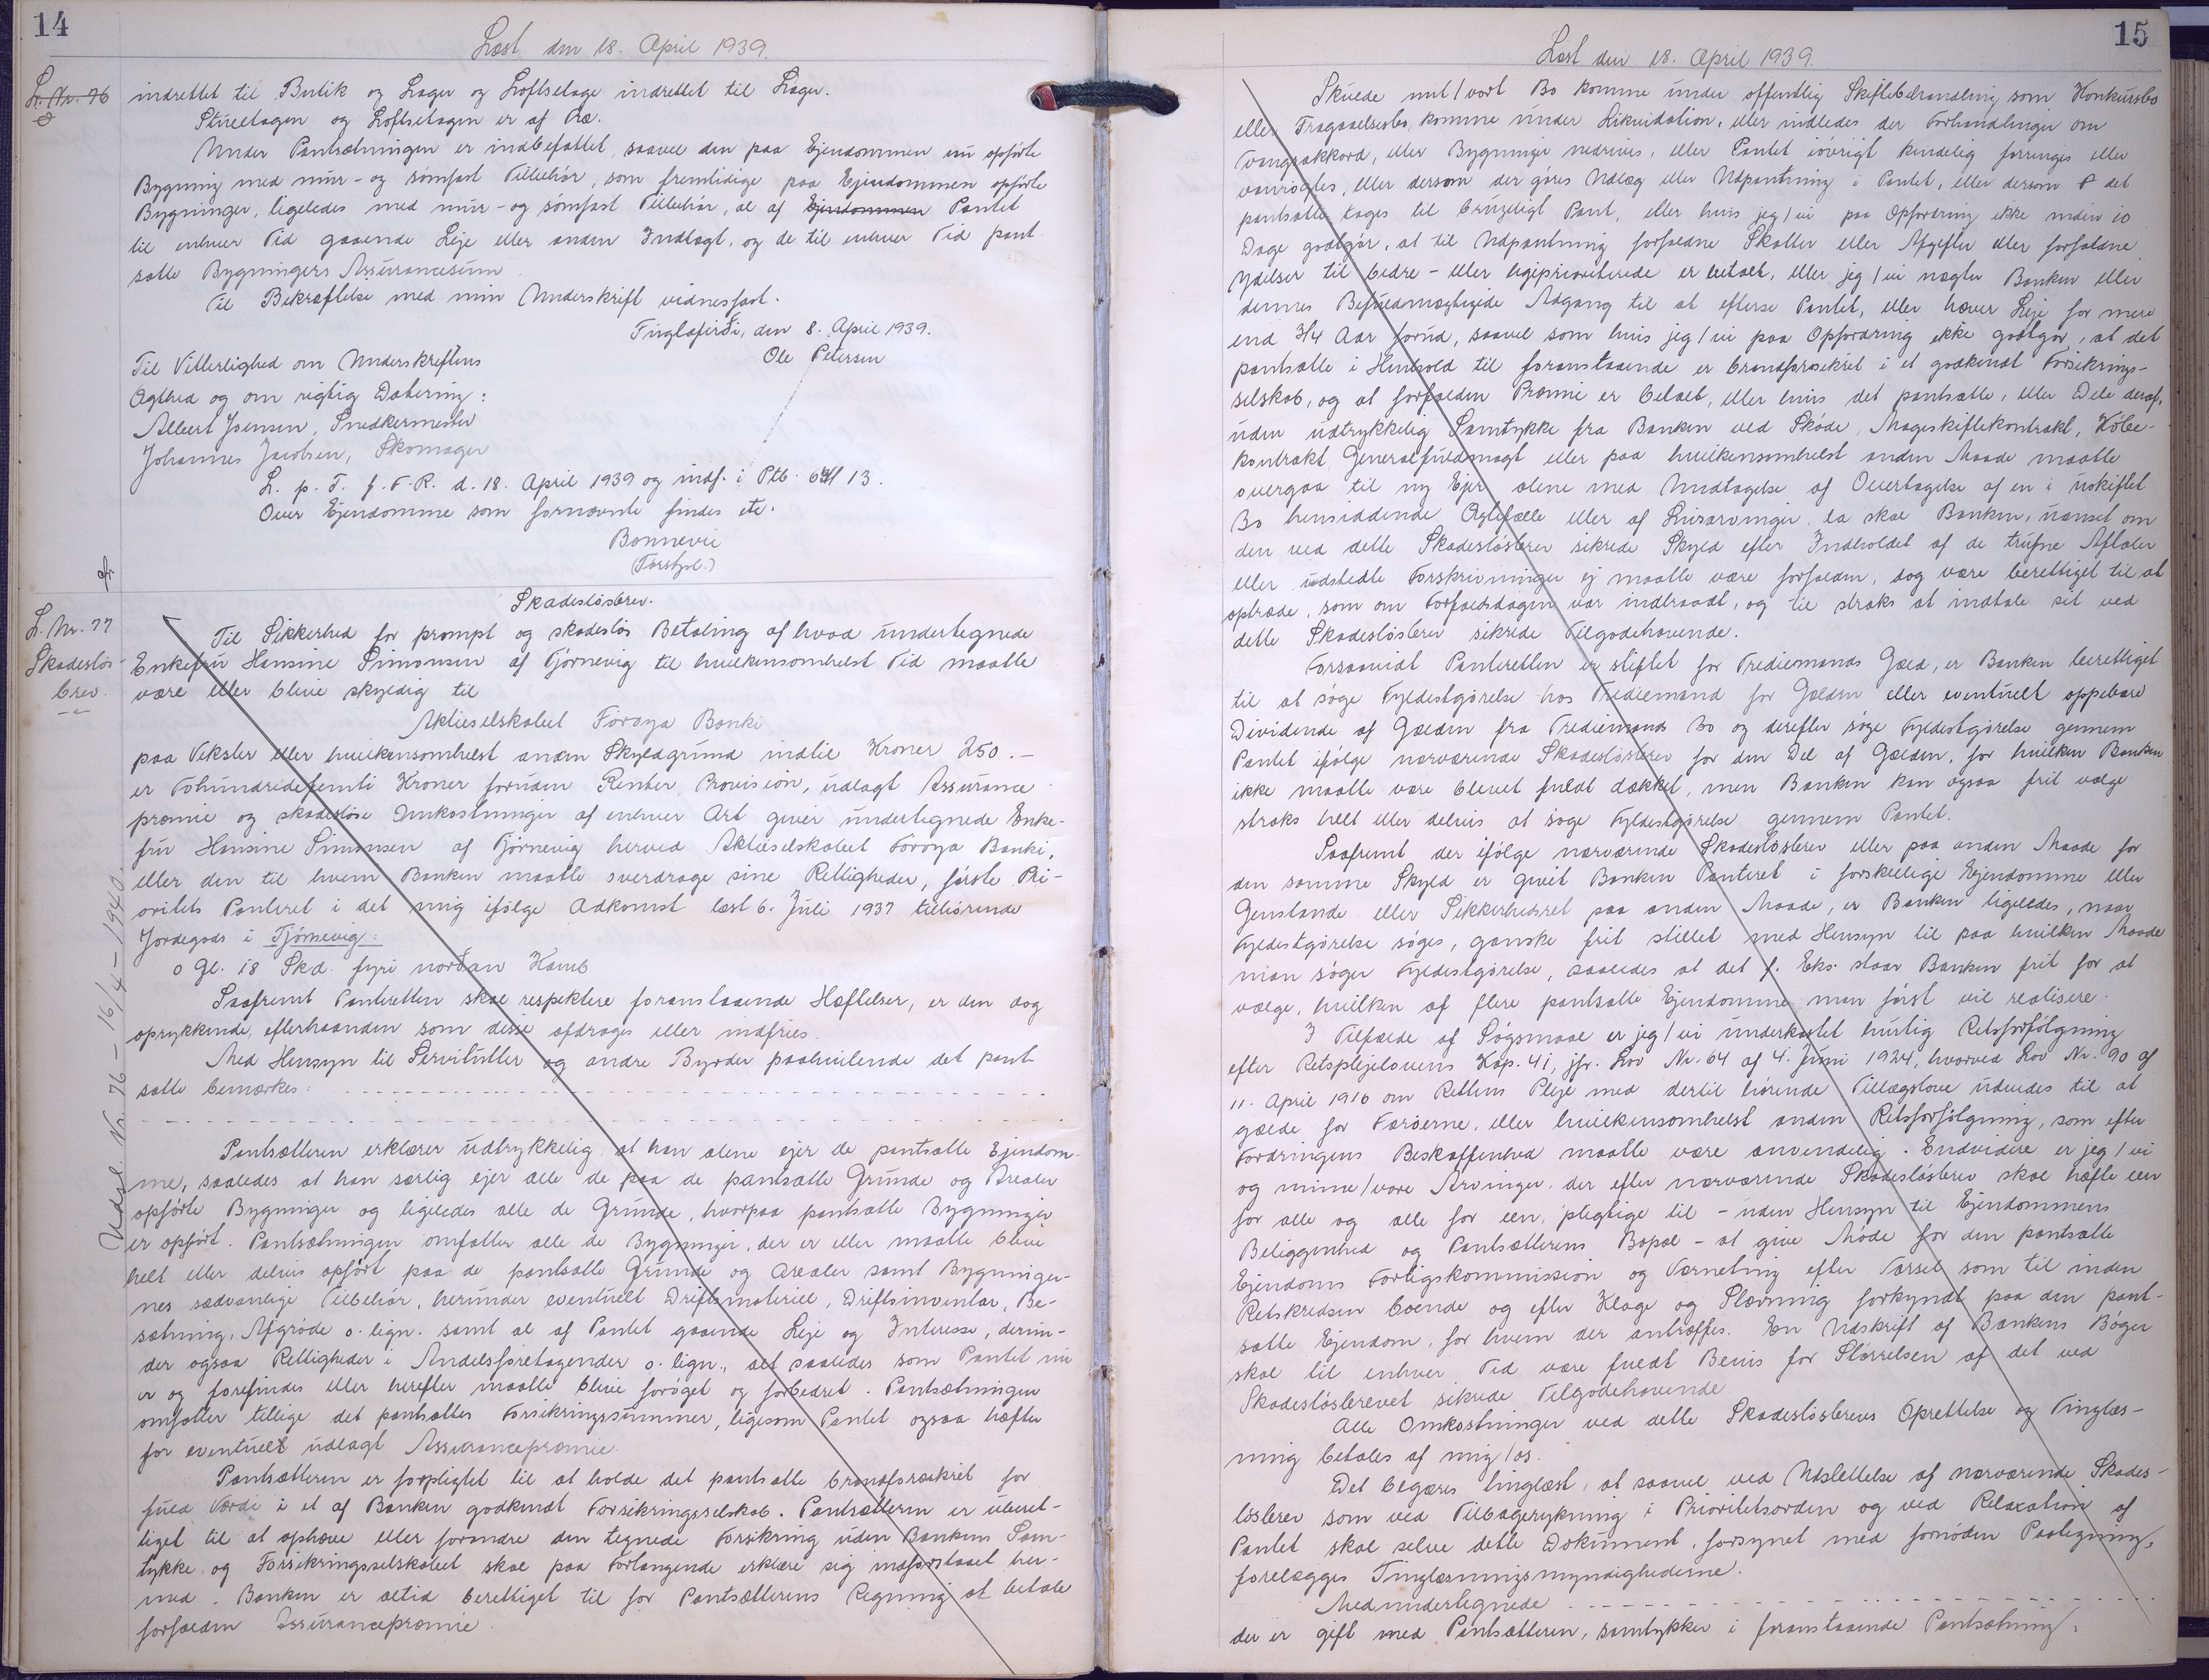 14
Læst den 18. April 1939.
L. Nr. 76
indrettet til Butik og Lager og Loftsetage indrettet til Lager.
Stueetagen og Loftsetagen er af Træ.
Under Pantsætningen er indbefattet saavel den paa Ejendommen nu opførte
Bygning med mur- og sømfast Tilbehør, som fremtidige paa Ejendommen opførte
Bygninger, ligeledes med mur- og sømfast Tilbehør, al af Ejendommen Pantet
til enhver Tid gaaende Leje eller anden Indtægt, og de til enhver Tid pant
satte Bygningers Assurancesum
Til Bekræftelse med min Underskrift vidnesfast.
Fuglafirði, den 8. April 1939.
Ole Petersen
Til Vitterlighed om Underskriftens
Ægthed og om rigtig Datering:
Albert Joensen, Snedkermester
Johannes Jacobsen, Skomager
L. p. T. f. F. R. d. 18. April 1939 og indf. i Ptb. 13.
Over Ejendomme som fornævnte findes etc.
Bonnevie
(Forstpl.)
L. Nr. 77
Skadesløs-
brev.
Skadesløsbrev.
Til Sikkerhed for prompt og skadesløs Betaling af hvad undertegnede
Enkefru Hansine Simonsen af Tjørnevig til hvilkensomhelst Tid maatte
være eller blive skyldig til
Aktieselskabet Føroya Banki
paa Veksler eller hvilkensomhelst anden Skyldgrund indtil Kroner 250.-
er Tohundredefemti Kroner foruden Renter, Provision, udlagt Assurance
præmie og skadesløse Omkostninger af enhver Art giver undertegnede Enke-
fru Hansine Simonsen af Tjørnevig herved Aktieselskabet Føroya Banki,
eller den til hvem Banken maatte overdrage sine Rettigheder, første Pri-
oritets Panteret i det mig ifølge Adkomst læst 6. Juli 1937 tilhørende
Jordegods i Tjørnevig:
0 Gl. 18 Skd. fyri norðan Kamb
Saafremt Panteretten skal respektere foranstaaende Hæftelser, er den dog
oprykkende, efterhaanden som disse afdrages eller indfries.
Med Hensyn til Servitutter og andre Byrder paahvilende det pant
satte bemærkes:
Udsl. Nr. 76 - 16/4 - 1940.
Pantsætteren erklærer udtrykkelig at han alene ejer de pantsatte Ejendom-
me, saaledes at han særlig ejer alle de paa de pantsatte Grunde og Arealer
opførte Bygninger og ligeledes alle de Grunde, hvorpaa pantsatte Bygninger
er opført. Pantsætningen omfatter alle de Bygninger, der er eller maatte blive
helt eller delvis opført paa de pantsatte Grunde og Arealer samt Bygninger-
nes sædvanlige Tilbehør, herunder eventuelt Driftsmateriel, Driftsinventar, Be-
sætning, Afgrøde o. lign. samt al af Pantet gaaende Leje og Interesse, derun-
der ogsaa Rettigheder i Andelsforetagender o. lign., alt saaledes som Pantet nu
er og forefindes eller herefter maatte blive forøget og forbedret. Pantsætningen
omfatter tillige det pantsattes Forsikringssummer, ligesom Pantet ogsaa hæfter
for eventuelt udlagt Assurancepræmie.
Pantsætteren er forpligtet til at holde det pantsatte brandforsikret for
fuld Værdi i et af Banken godkendt Forsikringsselskab. Pantsætteren er uberet-
tiget til at ophæve eller forandre den tegnede Forsikring uden Bankens Sam-
tykke, og Forsikringsselskabet skal paa Forlangende erklære sig indforstaaet her-
med. Banken er altid berettiget til for Pantsætterens Regning at betale
forfalden Assurancepræmie
15
Læst den 18. April 1939.
Skulde mit/vort Bo komme under offentlig Skiftebehandling som Konkursbo
eller Fragaaelsesbo, komme under Likvidation, eller indledes der Forhandlinger om
Tvangsakkord, eller Bygninger nedrives, eller Pantet iøvrigt kendelig forringes eller
vanrøgtes, eller dersom der gøres Udlæg eller Udpantning i Pantet, eller dersom det
pantsatte tages til brugeligt Pant, eller hvis jeg/vi paa Opfordring ikke inden 10
Dage godtgør, at til Udpantning forfaldne Skatter eller Afgifter eller forfaldne
Ydelser til bedre- eller ligeprioriterede er betalt, eller jeg/vi nægter Banken eller
dennes Befuldmægtigede Adgang til at efterse Pantet, eller hæver Leje for mere
end 3/4 Aar forud, saavel som hvis jeg/vi paa Opfordring ikke godtgør, at det
pantsatte i Henhold til foranstaaende er brandforsikret i et godkendt Forsikrings-
selskab, og at forfalden Præmie er betalt, eller hvis det pantsatte, eller Dele deraf,
uden udtrykkelig Samtykke fra Banken ved Skøde, Mageskiftekontrakt, Købe-
kontrakt, Generalfuldmagt eller paa hvilkensomhelst anden Maade maatte
overgaa til ny Ejer, alene med Undtagelse af Overtagelse af en i uskiftet
Bo hensiddende Ægtefælle eller af Livsarvinger, da skal Banken, uanset om
den ved dette Skadesløsbrev sikrede Skyld efter Indholdet af de trufne Aftaler
eller udstedte Forskrivninger ej maatte være forfalden, dog være berettiget til at
optræde, som om Forfaldsdagen var indtraadt, og til straks at indtale sit ved
dette Skadesløsbrev sikrede Tilgodehavende.
Forsaavidt Panteretten er stiftet for Trediemands Gæld, er Banken berettiget
til at søge Fyldestgørelse hos Trediemand for Gælden eller eventuelt oppebære
Dividende af Gælden fra Trediemands Bo og derefter søge Fyldestgørelse gennem
Pantet ifølge nærværende Skadesløsbrev for den Del af Gælden, for hvilken Banken
ikke maatte være blevet fuldt dækket, men Banken kan ogsaa frit vælge
straks helt eller delvis at søge Fyldestgørelse gennem Pantet.
Saafremt der ifølge nærværende Skadesløsbrev eller paa anden Maade for
den samme Skyld er givet Banken Panteret i forskellige Ejendomme eller
Genstande eller Sikkerhedsret paa anden Maade, er Banken ligeledes, naar
Fyldestgørelse søges, ganske frit stillet med Hensyn til paa hvilken Maade
man søger Fyldestgørelse, saaledes at det f. Eks. staar Banken frit for at
vælge, hvilken af flere pantsatte Ejendomme man først vil realisere.
I Tilfælde af Søgsmaal er jeg/vi underkastet hurtig Retsforfølgning
efter Retsplejelovens Kap. 41, jfr. Lov Nr. 64 af 4. Juni 1924, hvorved Lov Nr. 90 af
11. April 1916 om Rettens Pleje med dertil hørende Tillægslove udvides til at
gælde for Færøerne, eller hvilkensomhelst anden Retsforfølgning, som efter
Fordringens Beskaffenhed maatte være anvendelig. Endvidere er jeg/vi
og mine/vore Arvinger, der efter nærværende Skadesløsbrev skal hæfte een
for alle og alle for een, pligtige til - uden Hensyn til Ejendommens
Beliggenhed og Pantsætterens Bopæl - at give Møde for den pantsatte
Ejendoms Forligskommission og Værneting efter Varsel som til inden
Retskredsen boende og efter Klage og Stævning forkyndt paa den pant-
satte Ejendom, for hvem der antræffes. En Udskrift af Bankens Bøger
skal til enhver Tid være fuldt Bevis for Størrelsen af det ved
Skadesløsbrevet sikrede Tilgodehavende
Alle Omkostninger ved dette Skadesløsbrevs Oprettelse og Tinglæs-
ning betales af mig/os.
Det begæres tinglæst, at saavel ved Udslettelse af nærværende Skades-
løsbrev som ved Tilbagerykning i Prioritetsorden og ved Relaxation af
Pantet skal selve dette Dokument, forsynet med fornøden Paategning,
forelægges Tinglæsningsmyndighederne.
Medundertegnede
der er gift med Pantsætteren, samtykker i foranstaaende Pantsætning.